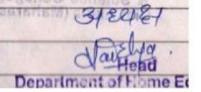 अध्यक्ष
Head
Department of Home Ec